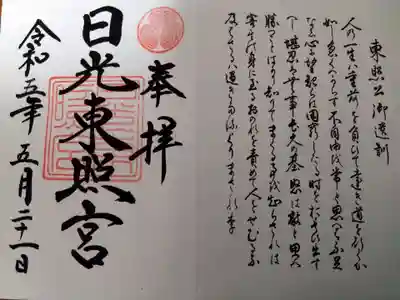 東照公御遺訓
人の一生は重荷を負ひて遠き道を行くか
如し急くへからす不自由を常と思へは不足
なし心に望おこらは困窮したる時を思ひ出す
へし堪忍は無事長久の基怒は敵と思へ
勝つことはかり知りてまくる事を知らされは
害其身に至るおのれを責めて人をせむるな
及はさるは過きたるよりまされり
奉拝
日光東照宮
令和五年五月二十一日